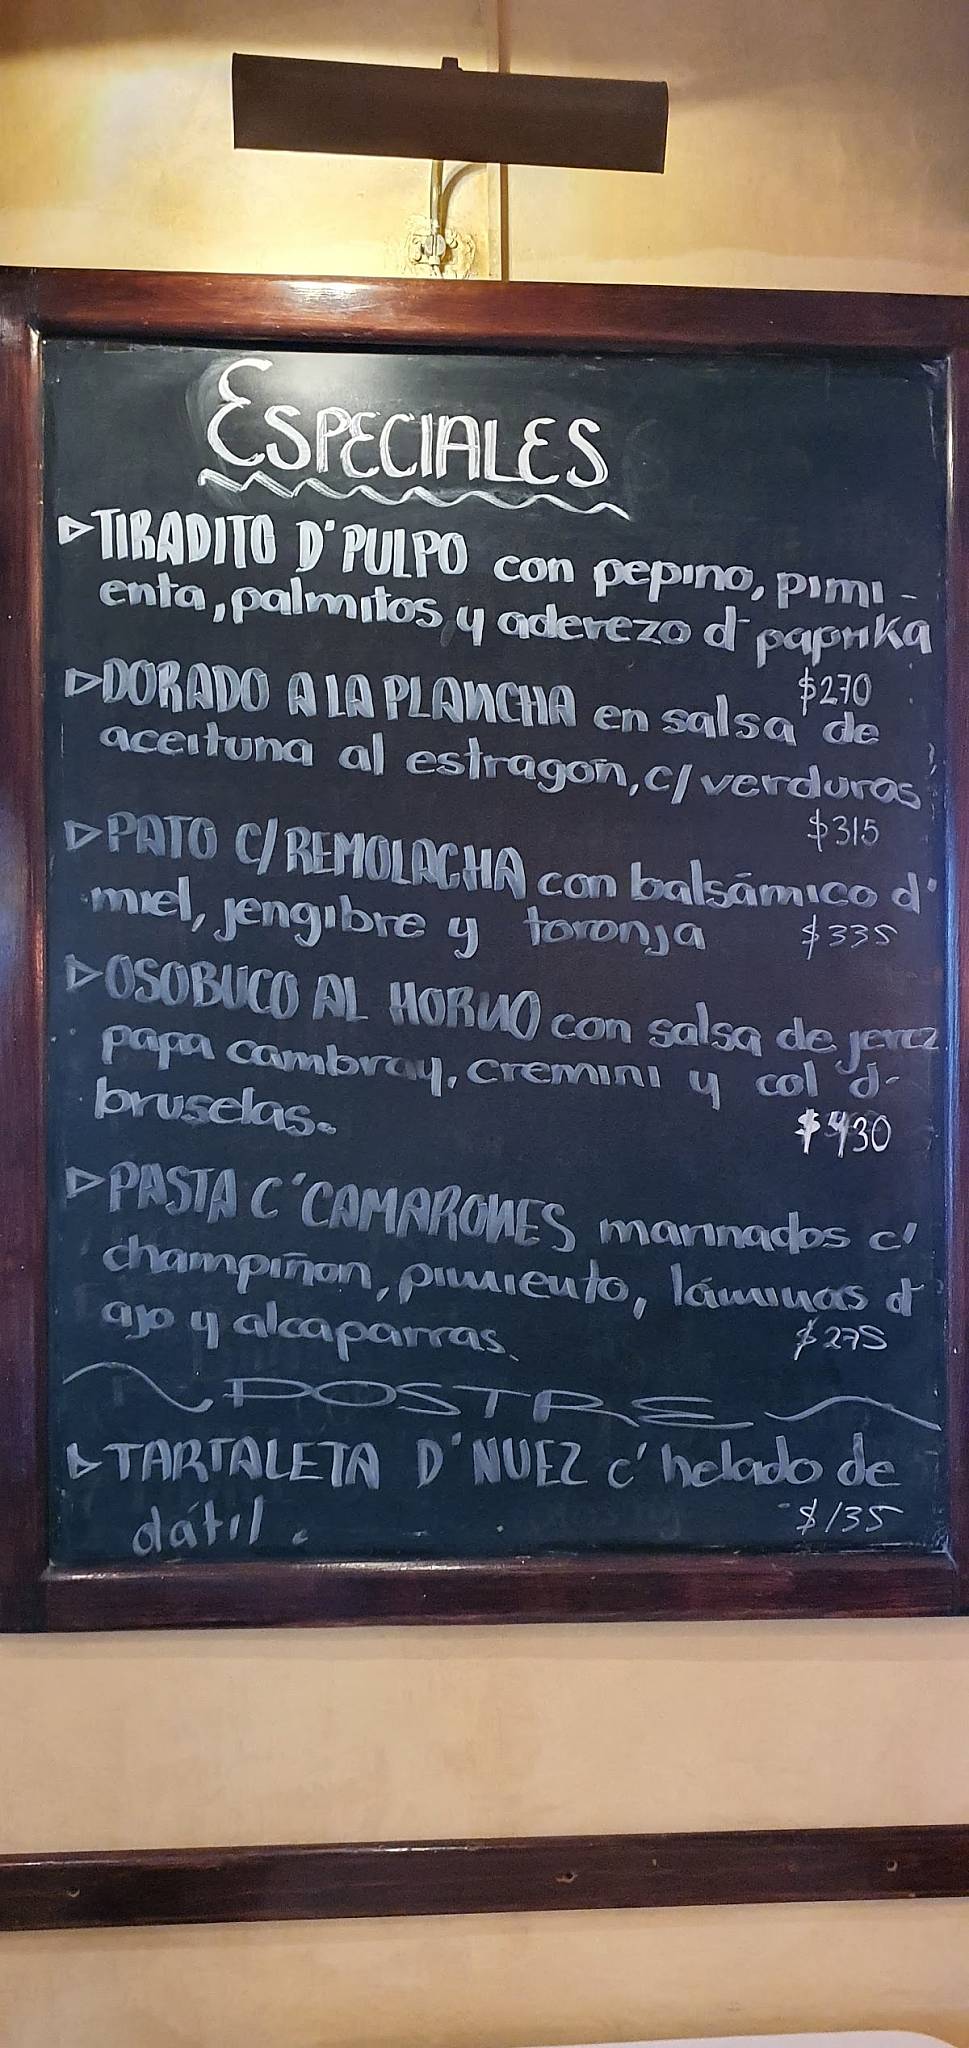 ESPECIALES
▷TIRADITO D' PULPO con pepino, pimi-
enta, palmitos y aderezo d' paprika
$270
▷DORADO A LA PLANCHA en salsa de
aceituna al estragon, c/verduras
$315
▷PATO C/REMOLACHA con balsámico d'
miel, jengibre y toronja $335
▷OSOBUCO AL HORNO con salsa de jerez
papa cambray, cremini y col d'
bruselas. $430
▷PASTA C' CAMARONES marinados c'
champiñon, pimiento, láminas d'
ajo y alcaparras. $275
~POSTRE~
▷TARTALETA D' NUEZ c' helado de
dátil. $135